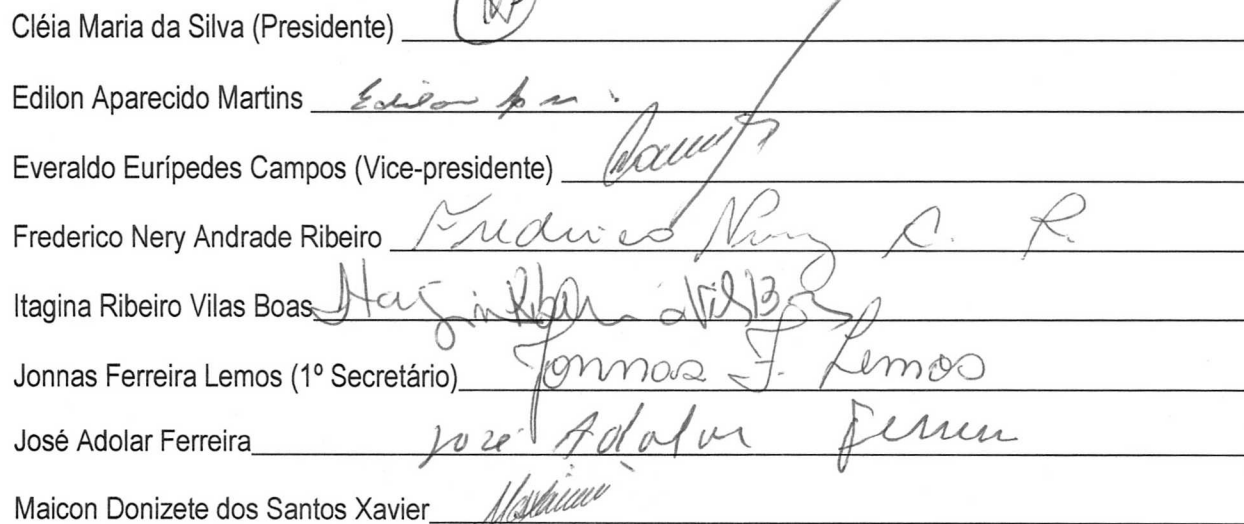 Cléia Maria da Silva (Presidente)
Edilon Aparecido Martins Edilon
Everaldo Eurípedes Campos (Vice-presidente)
Frederico Nery Andrade Ribeiro Frederico Nery A. R.
Itagina Ribeiro Vilas Boas Itagina
Jonnas Ferreira Lemos (1º Secretário) Jonnas F. Lemos
José Adolar Ferreira José Adolar Ferreira
Maicon Donizete dos Santos Xavier